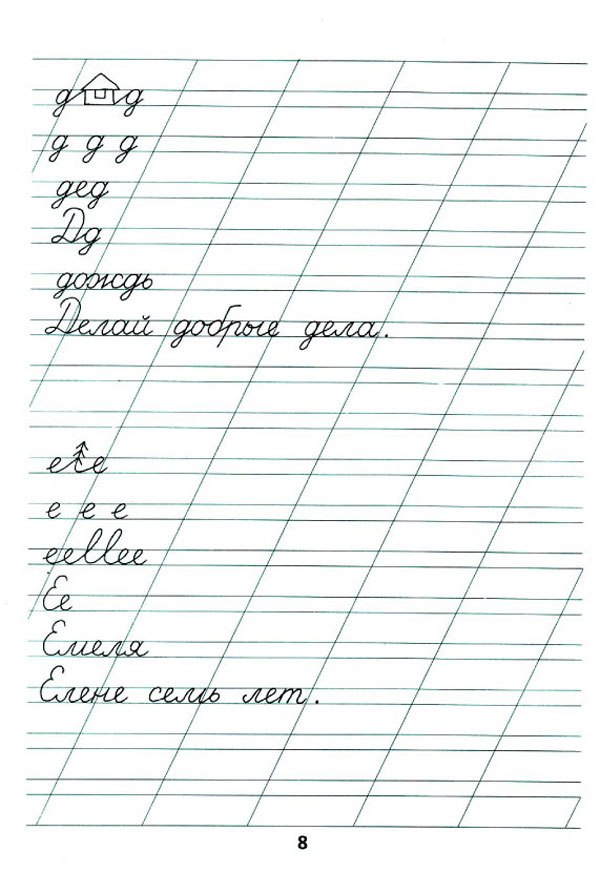 д д
д д д
дед
Дд
дождь
Делай добрые дела.
е е
е е е
ееllее
Ее
Емеля
Елене семь лет.
8